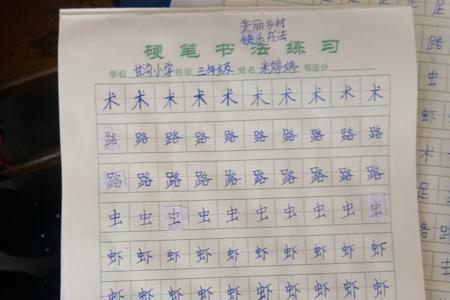 美丽乡村
快乐书法
硬笔书法练习
学校 甘沟小学 班级 三年级 姓名 等级分
术术术术术术术术术术
路路路路路路路路路路
路路路路路路路路路路
虫虫虫虫虫虫虫虫虫虫
虾虾虾虾虾虾虾虾虾虾
虾虾虾虾虾虾虾虾虾虾